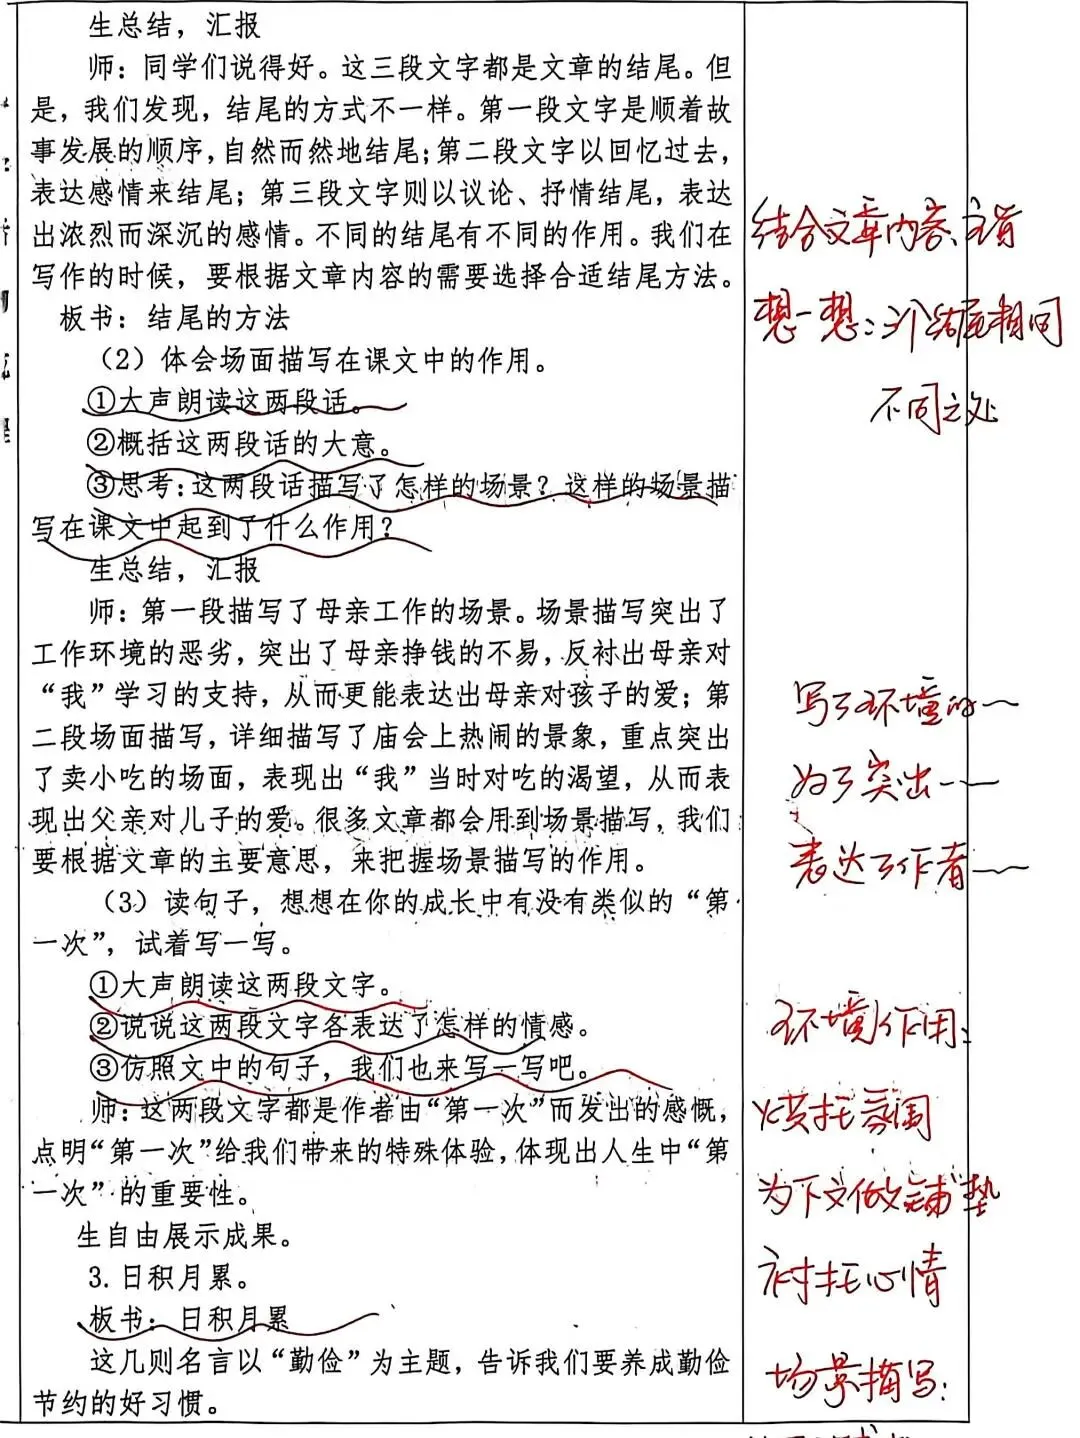 生总结，汇报
师：同学们说得好。这三段文字都是文章的结尾。但
是，我们发现，结尾的方式不一样。第一段文字是顺着故
事发展的顺序，自然而然地结尾；第二段文字以回忆过去，
表达感情来结尾；第三段文字则以议论、抒情结尾，表达
出浓烈而深沉的感情。不同的结尾有不同的作用。我们在
写作的时候，要根据文章内容的需要选择合适结尾方法。
板书：结尾的方法
（2）体会场面描写在课文中的作用。
①大声朗读这两段话。
②概括这两段话的大意。
③思考：这两段话描写了怎样的场景？这样的场景描
写在课文中起到了什么作用？
生总结，汇报
师：第一段描写了母亲工作的场景。场景描写突出了
工作环境的恶劣，突出了母亲挣钱的不易，反衬出母亲对
“我”学习的支持，从而更能表达出母亲对孩子的爱；第
二段场面描写，详细描写了庙会上热闹的景象，重点突出
了卖小吃的场面，表现出“我”当时对吃的渴望，从而表
现出父亲对儿子的爱。很多文章都会用到场景描写，我们
要根据文章的主要意思，来把握场景描写的作用。
（3）读句子，想想在你的成长中有没有类似的“第
一次”，试着写一写。
①大声朗读这两段文字。
②说说这两段文字各表达了怎样的情感。
③仿照文中的句子，我们也来写一写吧。
师：这两段文字都是作者由“第一次”而发出的感慨，
点明“第一次”给我们带来的特殊体验，体现出人生中“第
一次”的重要性。
生自由展示成果。
3.日积月累。
板书：日积月累
这几则名言以“勤俭”为主题，告诉我们要养成勤俭
节约的好习惯。
结合文章内容、主旨
想一想：三个结尾相同
不同之处
写了环境的
为了突出
表达了作者
环境作用：
烘托氛围
为下文做铺垫
衬托心情
场景描写：